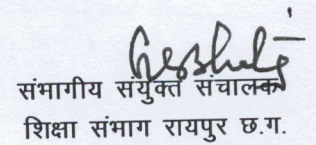 संभागीय संयुक्त संचालक
शिक्षा संभाग रायपुर छ.ग.